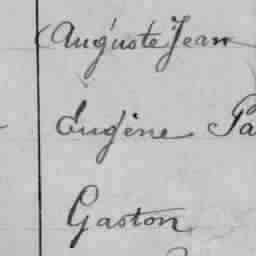 (Auguste Jean
Eugène Pa
Gaston